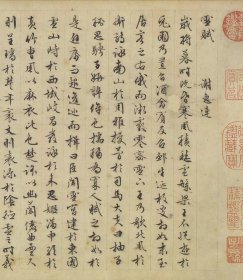 雪賦 謝惠連
歲將暮時既昏寒風積愁雲繁梁王不悅遊於
兔園乃置旨酒命賓友召鄒生延枚叟相如末至
居客之右俄而微霰零密雪下王乃歌北風於
衛詩詠南山於周雅授簡於司馬大夫曰抽子
秘思騁子妍辭侔色揣稱為寡人賦之相如於
是避席而起逡巡而揖曰臣聞雪宮建於東國
雪山峙於西域岐昌發詠於來思姬滿申歌於
黃竹曹風以麻衣比色楚謠以幽蘭儷曲盈尺
則呈瑞於豐年袤丈則表沴於陰德雪之時義